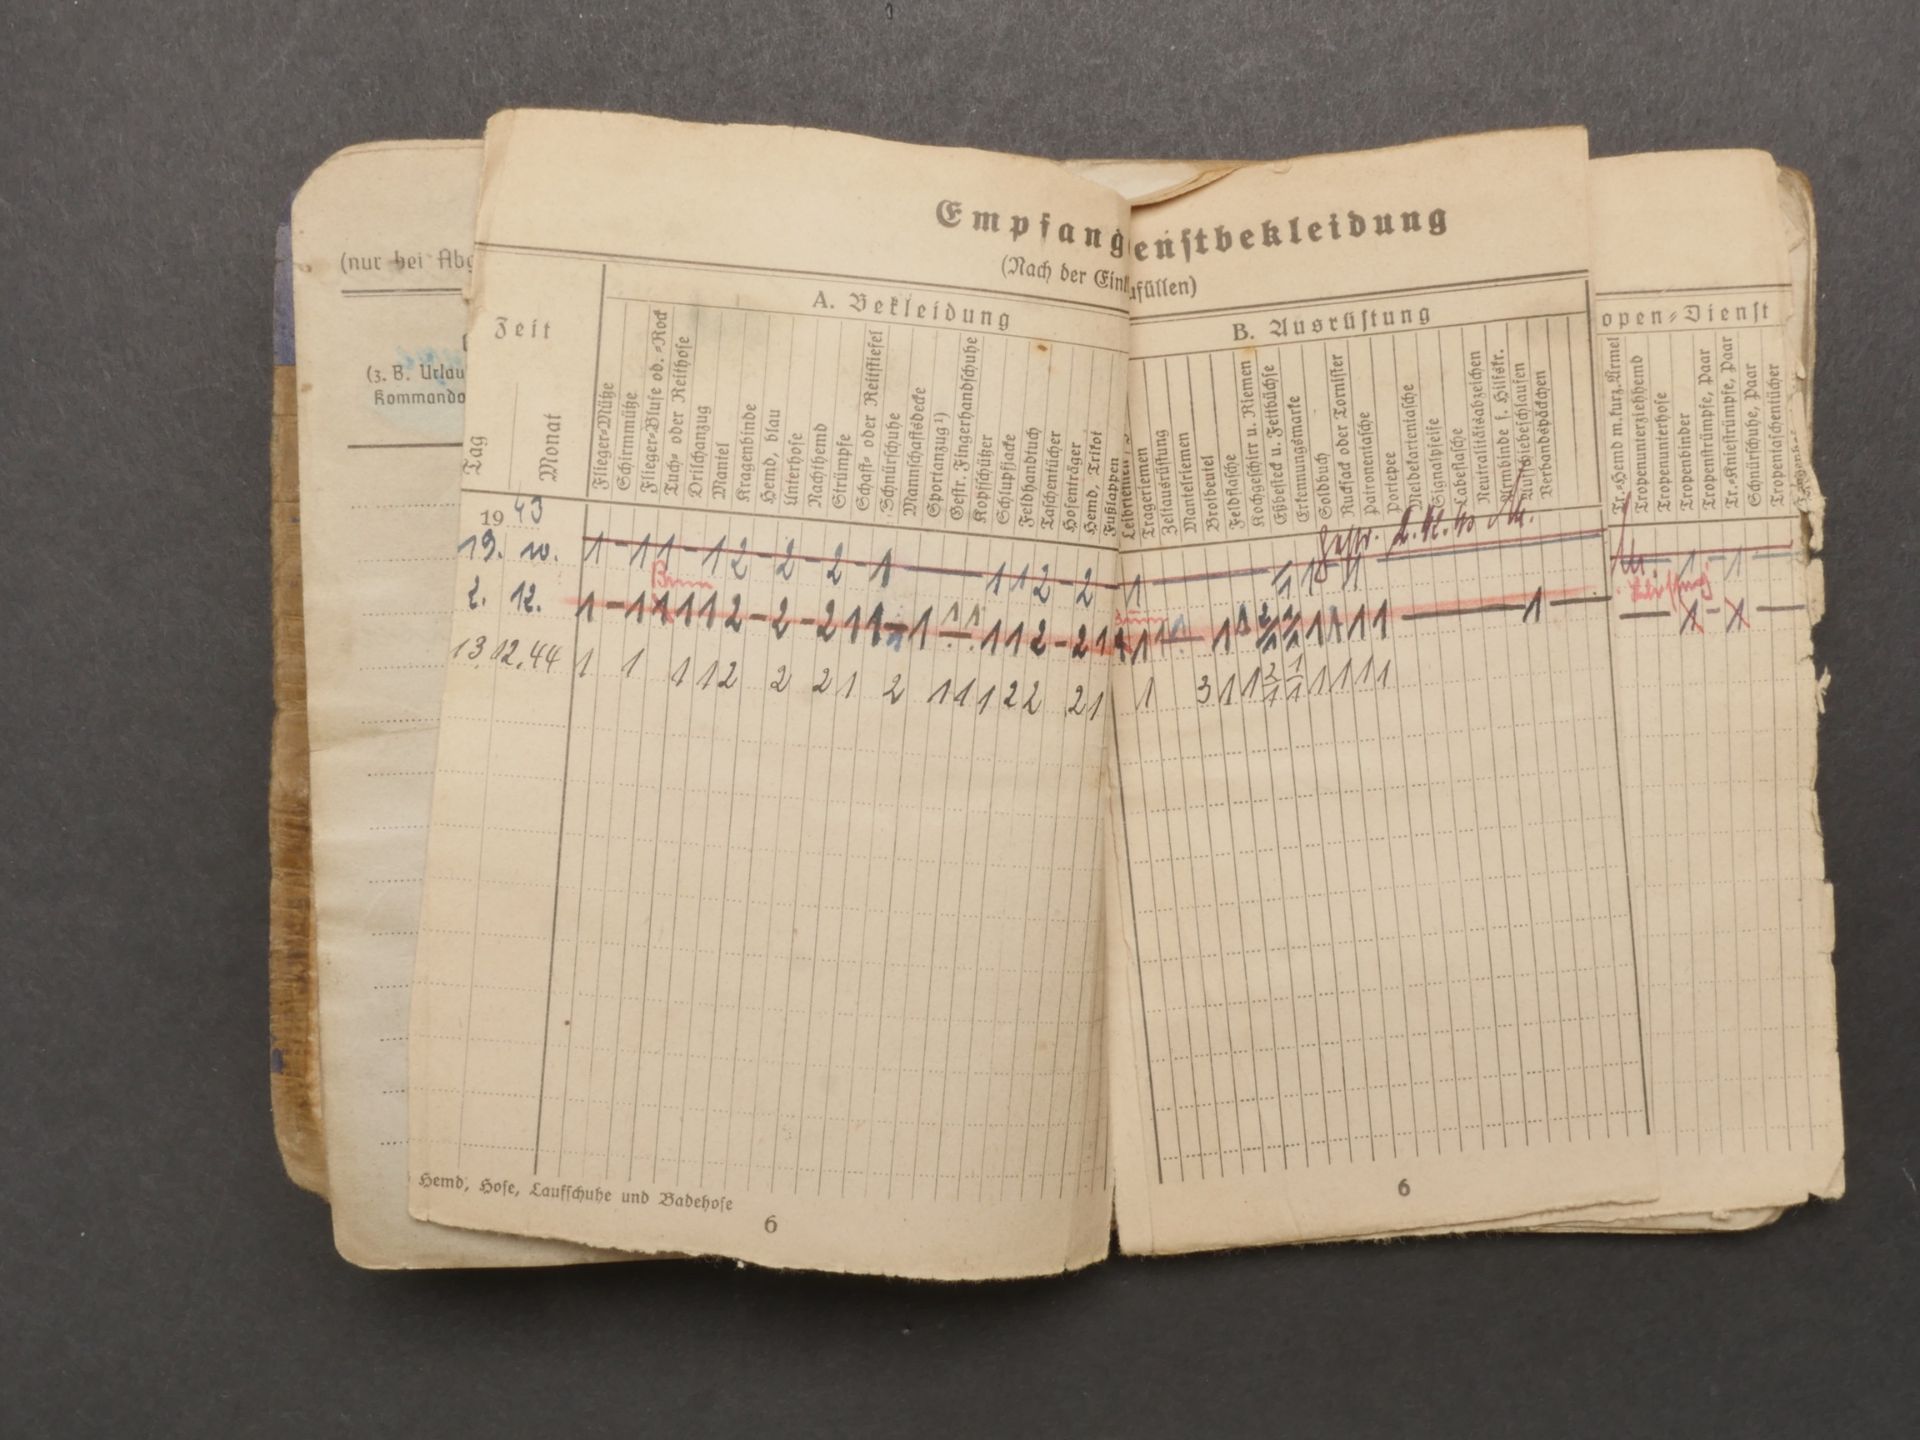 (nur bei Abg
(z. B. Urlau
Kommando
Empfang
enstbekleidung
(Nach der Eink
ufüllen)
Zeit
Tag
Monat
A. Bekleidung
Flieger-Mütze
Schirmmütze
Flieger-Bluse od. -Rock
Tuch- oder Reithose
Drilchanzug
Mantel
Kragenbinde
Hemd, blau
Unterhose
Nachthemd
Strümpfe
Schaft- oder Reitstiefel
Schnürschuhe
Mannschaftsdecke
Sportanzug ¹)
Gestr. Fingerhandschuhe
Kopfschützer
Schlupfjacke
Feldhandtuch
Taschentücher
Hosenträger
Hemd, Trikot
Fußlappen
B. Ausrüstung
Leibriemen
Trageriemen
Zeltausrüstung
Mantelriemen
Brotbeutel
Feldflasche
Kochgeschirr u. Riemen
Eßbesteck u. Fettbüchse
Erkennungsmarke
Soldbuch
Rucksack oder Tornister
Patronentasche
Portepee
Meldekartentasche
Signalpfeife
Labeflasche
Neutralitätsabzeichen
Armbinde f. Hilfskr.
Aufschiebeschlaufen
Verbandspäckchen
open-Dienst
Tr.-Hemd m. kurz. Ärmel
Tropenunterziehhemd
Tropenunterhose
Tropenbinder
Tropenstrümpfe, Paar
Tr.-Kniestrümpfe, Paar
Schnürschuhe, Paar
Tropentaschentücher
19 43
19. 10. 1 - 1 1 - 1 2 - 2 - 2 - 1 — 1 1 2 - 2 - 1
2. 12. 1 - 1 1 1 1 2 - 2 - 2 1 1
13. 12. 44 1 1 1 1 2 2 2 1 2 1 1 1 2 2 2 1 1 3 1 1 2/1 1/1 1 1 1 1
Hemd, Hose, Laufschuhe und Badehose
6
6